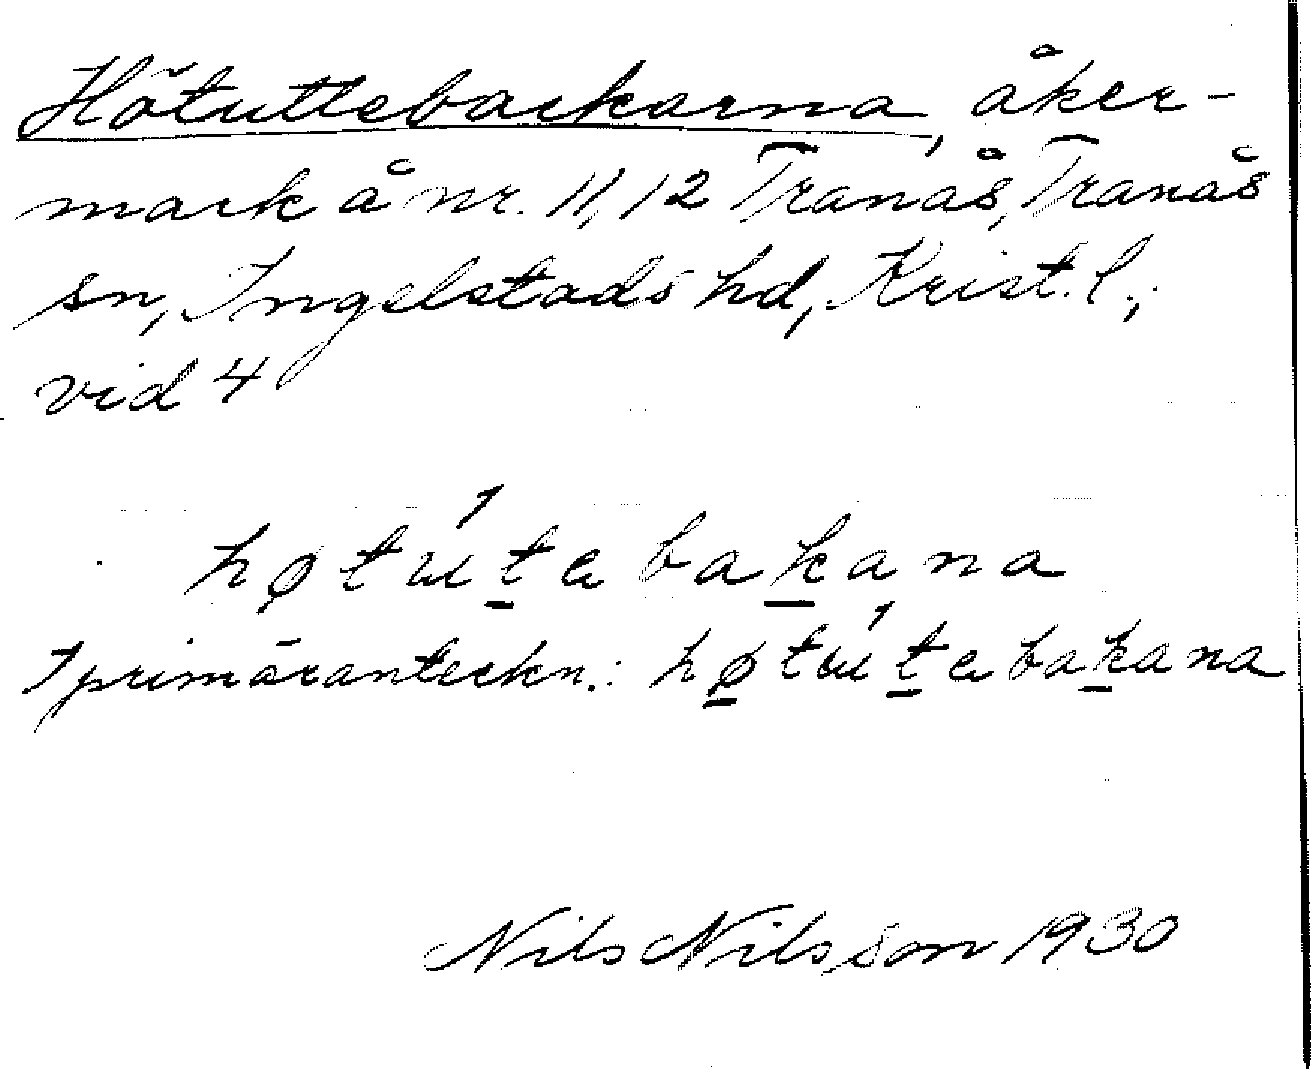 Hötuttebackarna, åker-
mark å nr. 11, 12 Tranås, Tranås
sn, Ingelstads hd, Krist. l.,
vid 4
høtut̲ebak̲ana
1 primäranteckn.: hø̲tut̲ebak̲ana
Nils Nilsson 1930